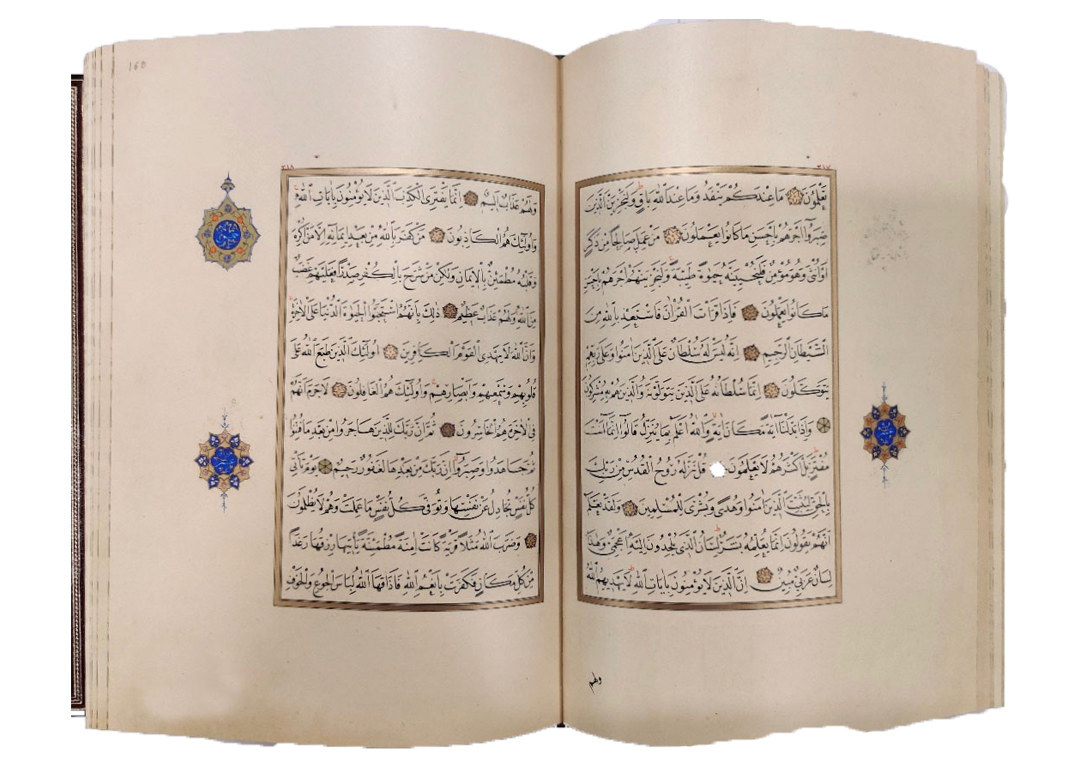 تَعْلَمُونَ مَا عِنْدَكُمْ يَنْفَدُ وَمَا عِنْدَ اللّٰهِ بَاقٍ وَلَنَجْزِيَنَّ الَّذِينَ
صَبَرُوا أَجْرَهُمْ بِأَحْسَنِ مَا كَانُوا يَعْمَلُونَ مَنْ عَمِلَ صَالِحًا مِنْ ذَكَرٍ
أَوْ أُنْثَى وَهُوَ مُؤْمِنٌ فَلَنُحْيِيَنَّهُ حَيٰوةً طَيِّبَةً وَلَنَجْزِيَنَّهُمْ أَجْرَهُمْ بِأَحْسَنِ
مَا كَانُوا يَعْمَلُونَ فَإِذَا قَرَأْتَ الْقُرْآنَ فَاسْتَعِذْ بِاللّٰهِ مِنَ
الشَّيْطَانِ الرَّجِيمِ إِنَّهُ لَيْسَ لَهُ سُلْطَانٌ عَلَى الَّذِينَ آمَنُوا وَعَلَى رَبِّهِمْ
يَتَوَكَّلُونَ إِنَّمَا سُلْطَانُهُ عَلَى الَّذِينَ يَتَوَلَّوْنَهُ وَالَّذِينَ هُمْ بِهِ مُشْرِكُونَ
وَإِذَا بَدَّلْنَا آيَةً مَكَانَ آيَةٍ وَاللّٰهُ أَعْلَمُ بِمَا يُنَزِّلُ قَالُوا إِنَّمَا أَنْتَ
مُفْتَرٍ بَلْ أَكْثَرُهُمْ لَا يَعْلَمُونَ قُلْ نَزَّلَهُ رُوحُ الْقُدُسِ مِنْ رَبِّكَ
بِالْحَقِّ لِيُثَبِّتَ الَّذِينَ آمَنُوا وَهُدًى وَبُشْرَى لِلْمُسْلِمِينَ وَلَقَدْ نَعْلَمُ
أَنَّهُمْ يَقُولُونَ إِنَّمَا يُعَلِّمُهُ بَشَرٌ لِسَانُ الَّذِي يُلْحِدُونَ إِلَيْهِ أَعْجَمِيٌّ وَهٰذَا
لِسَانٌ عَرَبِيٌّ مُبِينٌ إِنَّ الَّذِينَ لَا يُؤْمِنُونَ بِآيَاتِ اللّٰهِ لَا يَهْدِيهِمُ اللّٰهُ
ولهم
160
وَلَهُمْ عَذَابٌ أَلِيمٌ إِنَّمَا يَفْتَرِي الْكَذِبَ الَّذِينَ لَا يُؤْمِنُونَ بِآيَاتِ اللّٰهِ
وَأُولٰئِكَ هُمُ الْكَاذِبُونَ مَنْ كَفَرَ بِاللّٰهِ مِنْ بَعْدِ إِيمَانِهِ إِلَّا مَنْ أُكْرِهَ
وَقَلْبُهُ مُطْمَئِنٌّ بِالْإِيمَانِ وَلٰكِنْ مَنْ شَرَحَ بِالْكُفْرِ صَدْرًا فَعَلَيْهِمْ غَضَبٌ
مِنَ اللّٰهِ وَلَهُمْ عَذَابٌ عَظِيمٌ ذٰلِكَ بِأَنَّهُمُ اسْتَحَبُّوا الْحَيٰوةَ الدُّنْيَا عَلَى الْآخِرَةِ
وَأَنَّ اللّٰهَ لَا يَهْدِي الْقَوْمَ الْكَافِرِينَ أُولٰئِكَ الَّذِينَ طَبَعَ اللّٰهُ عَلَى
قُلُوبِهِمْ وَسَمْعِهِمْ وَأَبْصَارِهِمْ وَأُولٰئِكَ هُمُ الْغَافِلُونَ لَا جَرَمَ أَنَّهُمْ
فِي الْآخِرَةِ هُمُ الْخَاسِرُونَ ثُمَّ إِنَّ رَبَّكَ لِلَّذِينَ هَاجَرُوا مِنْ بَعْدِ مَا فُتِنُوا
ثُمَّ جَاهَدُوا وَصَبَرُوا إِنَّ رَبَّكَ مِنْ بَعْدِهَا لَغَفُورٌ رَحِيمٌ يَوْمَ تَأْتِي
كُلُّ نَفْسٍ تُجَادِلُ عَنْ نَفْسِهَا وَتُوَفَّى كُلُّ نَفْسٍ مَا عَمِلَتْ وَهُمْ لَا يُظْلَمُونَ
وَضَرَبَ اللّٰهُ مَثَلًا قَرْيَةً كَانَتْ آمِنَةً مُطْمَئِنَّةً يَأْتِيهَا رِزْقُهَا رَغَدًا
مِنْ كُلِّ مَكَانٍ فَكَفَرَتْ بِأَنْعُمِ اللّٰهِ فَأَذَاقَهَا اللّٰهُ لِبَاسَ الْجُوعِ وَالْخَوْفِ